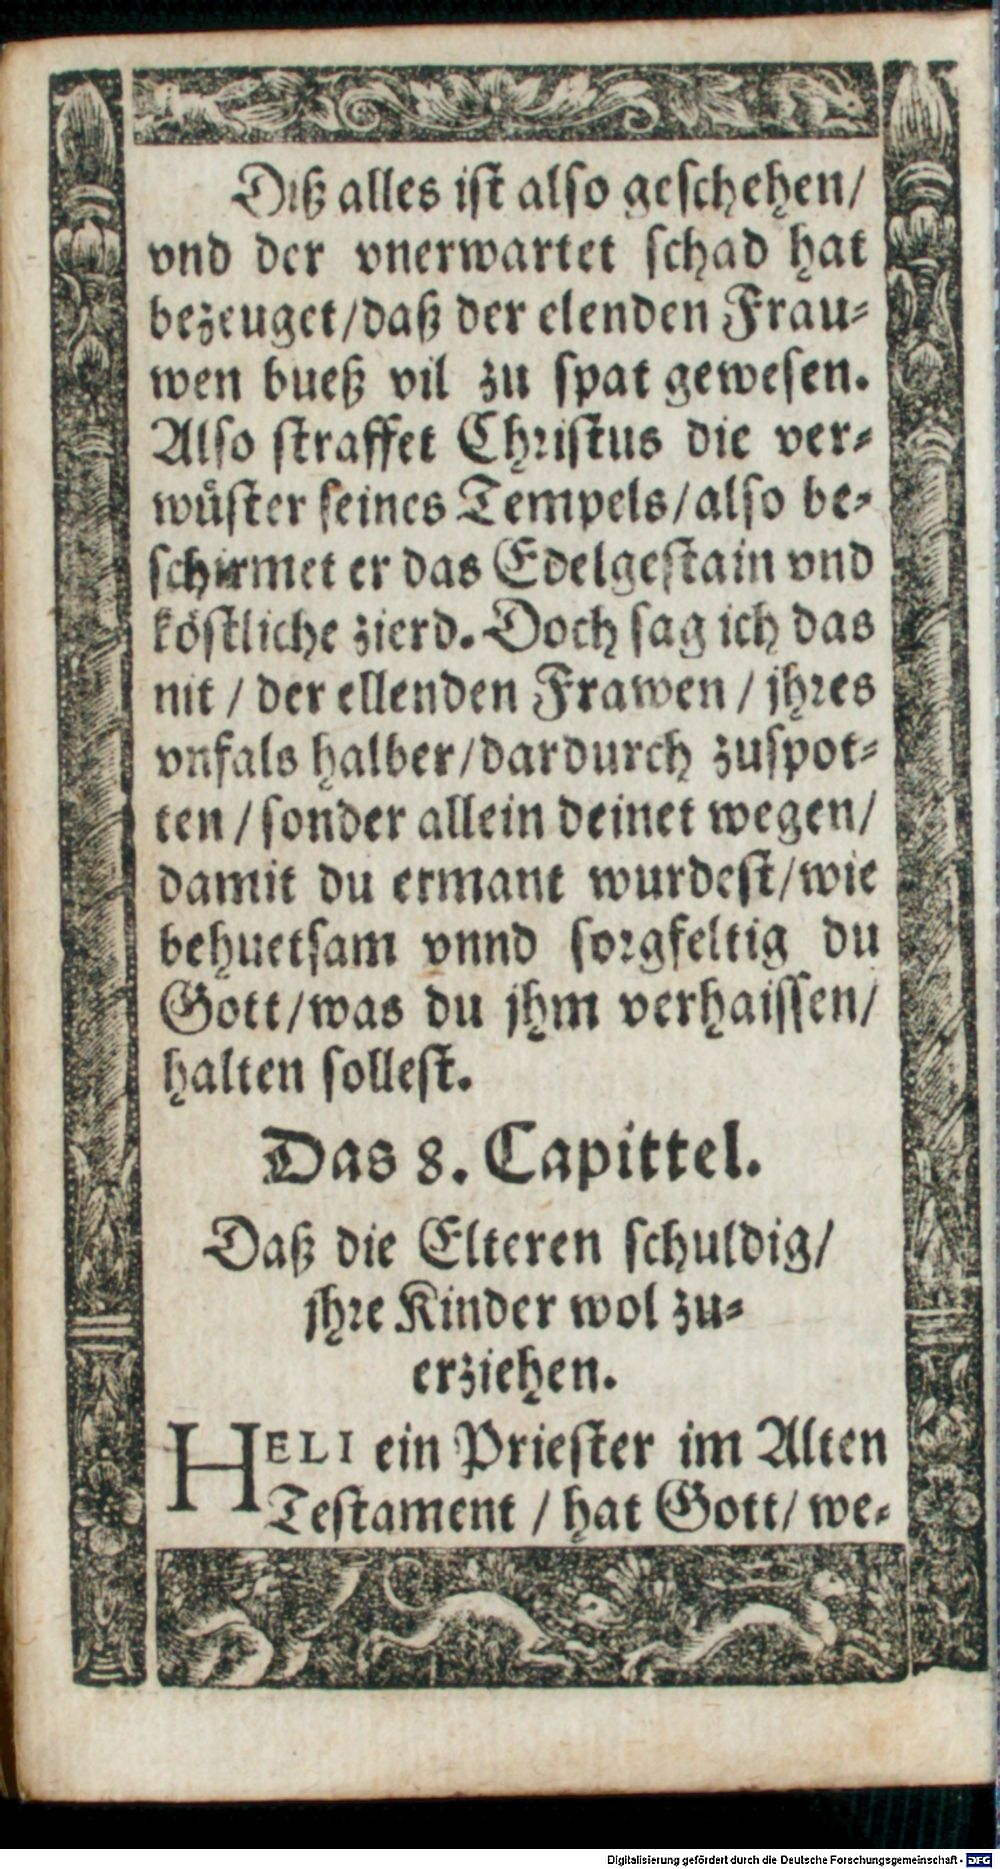 Diß alles ist also geschehen/
vnd der vnerwartet schad hat
bezeuget/daß der elenden Frau-
wen bueß vil zu spat gewesen.
Also straffet Christus die ver-
wüster seines Tempels/also be-
schirmet er das Edelgestain vnd
köstliche zierd. Doch sag ich das
nit / der ellenden Frawen / jhres
vnfals halber/dardurch zuspot-
ten/sonder allein deinet wegen/
damit du ermant wurdest/wie
behuetsam vnnd sorgfeltig du
Gott/was du jhm verhaissen/
halten sollest.
Das 8. Capittel.
Daß die Elteren schuldig/
jhre Kinder wol zu-
erziehen.
HELI ein Priester im Alten
Testament / hat Gott/ we-
Digitalisierung gefördert durch die Deutsche Forschungsgemeinschaft - DFG